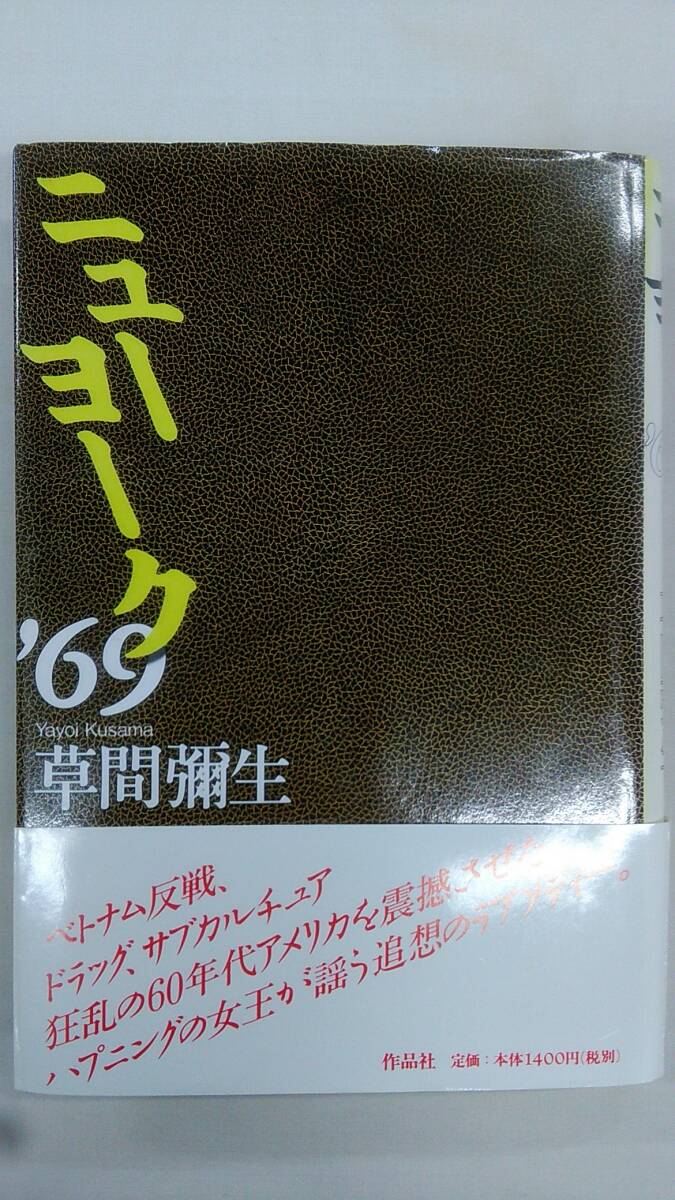 ニュー
ヨーク
'69
Yayoi Kusama
草間彌生
ベトナム反戦、
ドラッグ、サブカルチュア
狂乱の60年代アメリカを震撼させた
ハプニングの女王が謡う追想のラプソディー。
作品社 定価:本体1400円(税別)